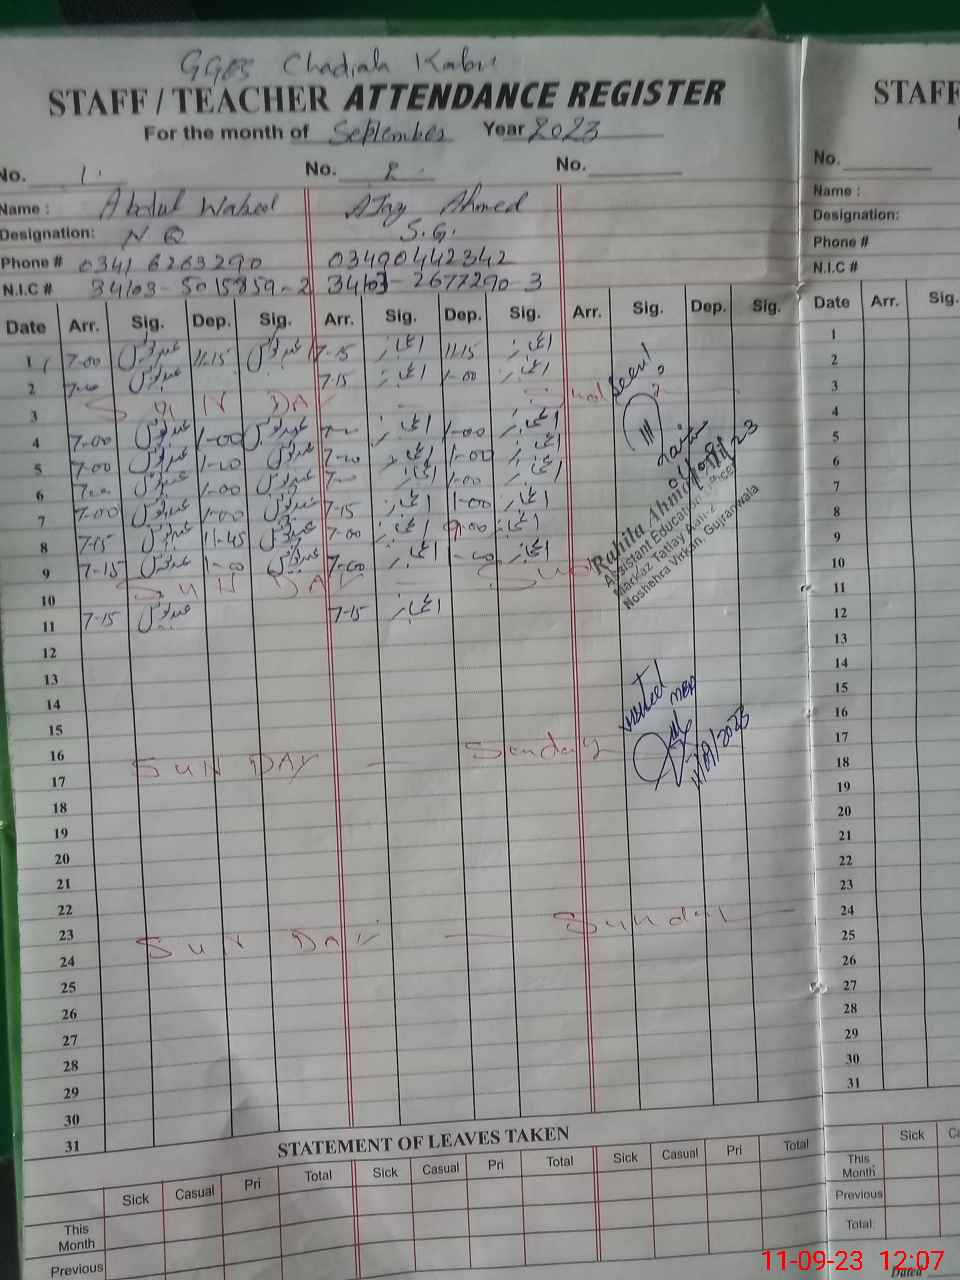 GGES Chadiala Kabir
STAFF / TEACHER ATTENDANCE REGISTER
For the month of September Year 2023
No. 1. No. 2. No.
Name : Abdul Waheed Ahmed
Designation: N.Q S.G.
Phone # 0341 6263290 03490442342
N.I.C # 34103-5015859-2 34103-2677290-3
Date Arr. Sig. Dep. Sig. Arr. Sig. Dep. Sig. Arr. Sig. Dep. Sig.
1 7-00 11-15 7-15 اعجاز 11-15 اعجاز
2 7-00 7-15 اعجاز 1-00 اعجاز
3 SUNDAY
4 7-00 1-00 7-00 اعجاز 1-00 اعجاز
5 7-00 1-00 7-00 اعجاز 1-00 اعجاز
6 7-00 1-00 7-00 اعجاز 1-00 اعجاز
7 7-00 1-00 7-15 اعجاز 1-00 اعجاز
8 7-15 11-45 7-00 اعجاز اعجاز
9 7-15 7-00 اعجاز 1-00 اعجاز
10 SUNDAY
11 7-15 7-15 اعجاز
12
13
14
15
16
17 SUNDAY — Sunday
18
19
20
21
22
23
24 SUNDAY — Sunday
25
26
27
28
29
30
31
Seen
Rahila Ahmed
Assistant Education Officer
Markaz Tatlay Aali-2
Noshehra Virkan, Gujranwala
visited MEA
11/09/2023
STATEMENT OF LEAVES TAKEN
Sick Casual Pri Total Sick Casual Pri Total Sick Casual Pri Total
This
Month
Previous
STAFF
No.
Name :
Designation:
Phone #
N.I.C #
Date Arr. Sig.
1
2
3
4
5
6
7
8
9
10
11
12
13
14
15
16
17
18
19
20
21
22
23
24
25
26
27
28
29
30
31
Sick
This
Month:
Previous
Total:
Dated
11-09-23 12:07